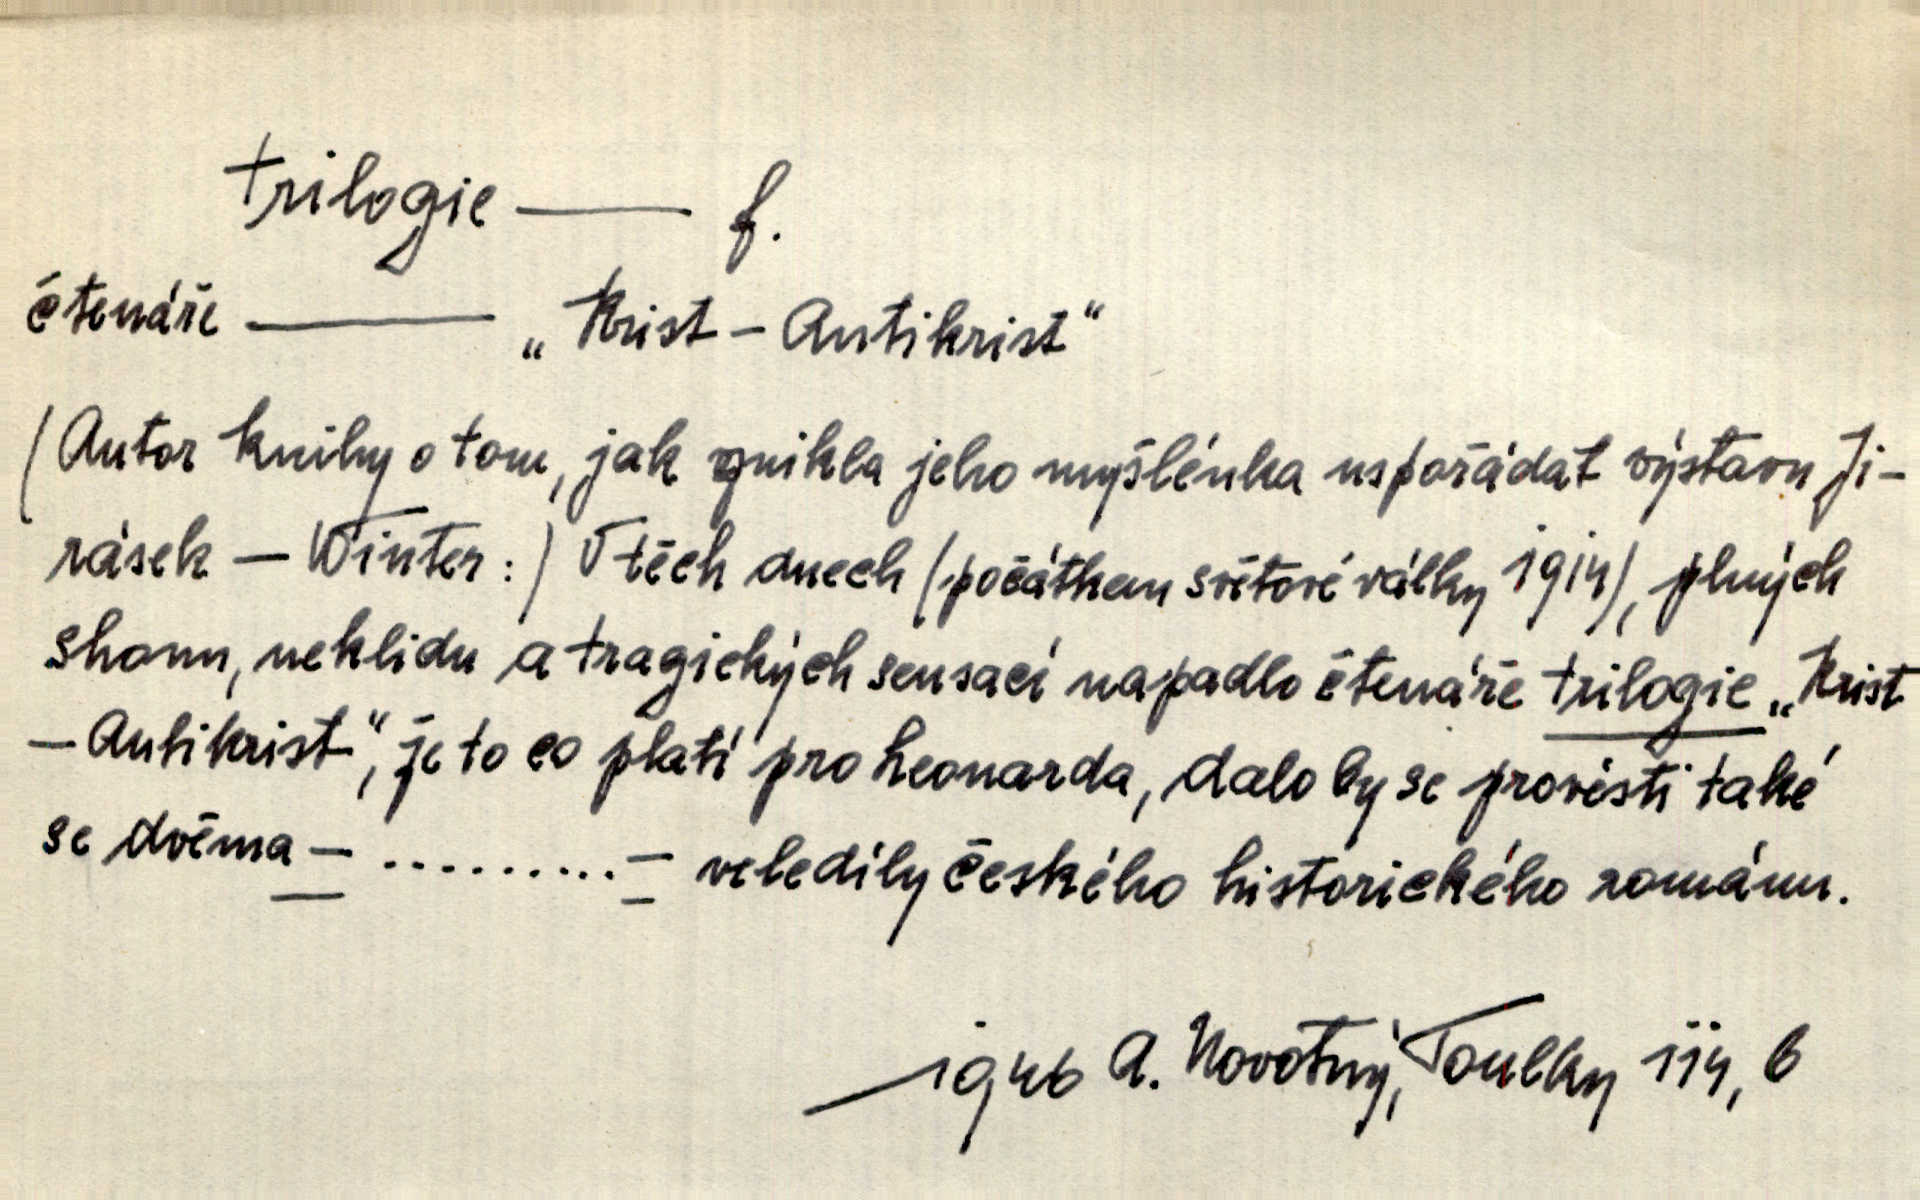 trilogie — f.
čtenáře — „Krist – Antikrist“
(Autor knihy o tom, jak vznikla jeho myšlénka uspořádat výstavu Ji-
rásek – Winter:) V těch dnech (počátkem světové války 1914), plných
shonu, neklidu a tragických sensací napadlo čtenáře trilogie „Krist
– Antikrist“, že to co platí pro Leonarda, dalo by se provésti také
se dvěma – .......... – veledíly českého historického románu.
1946 A. Novotný, Toulky 114, 6